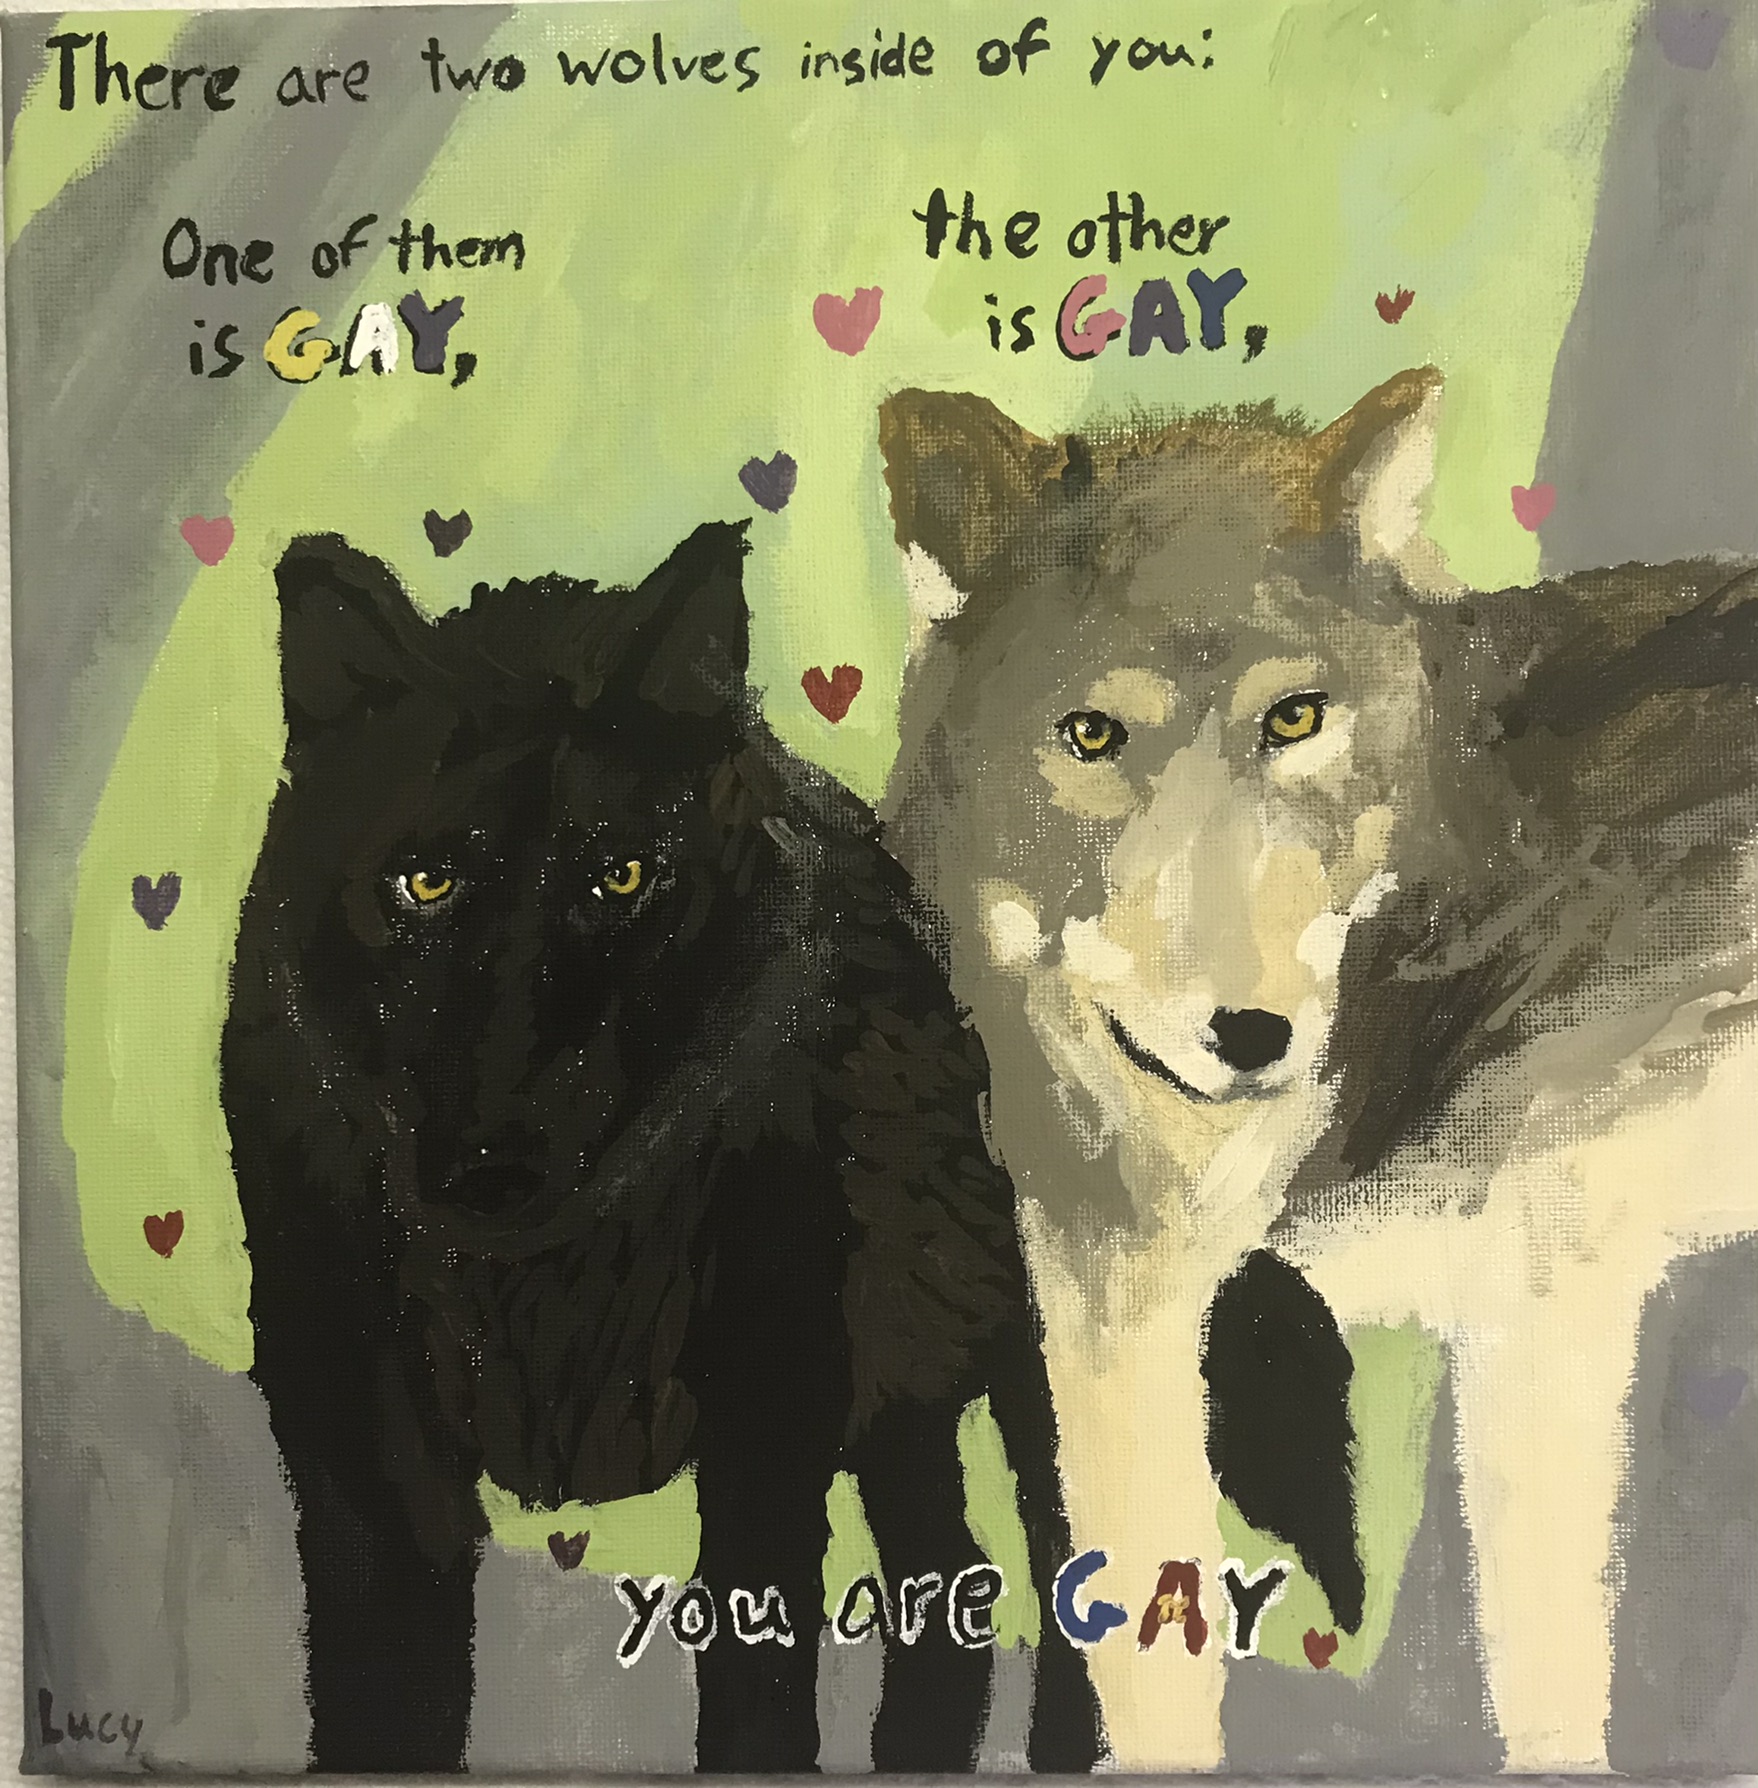 There are two wolves inside of you:
One of them
is GAY,
the other
is GAY,
you are GAY
Lucy